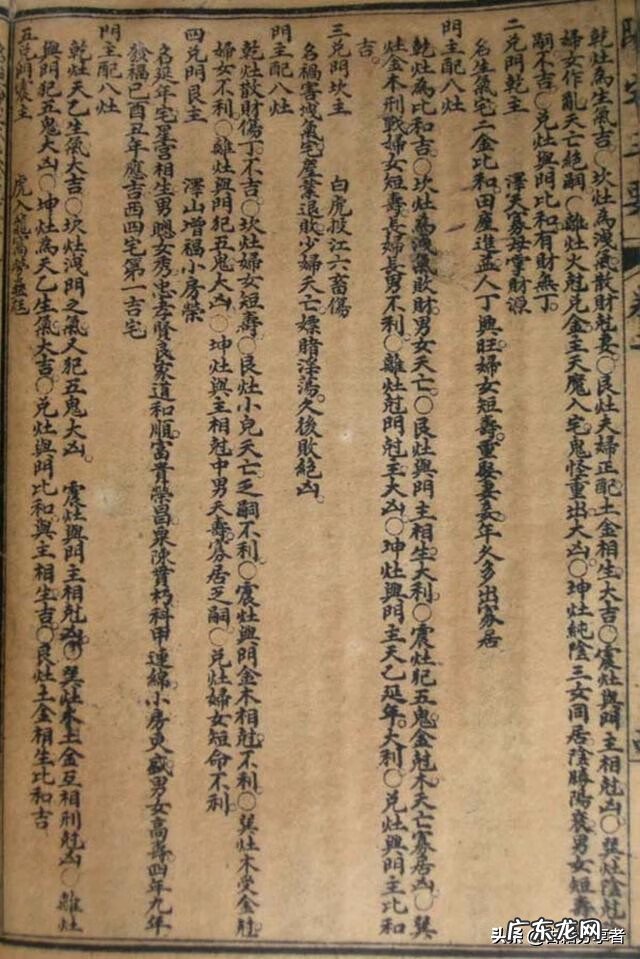 陽宅三要
乾灶為生氣吉○坎灶為洩氣散財尅妻○艮灶夫婦正配土金相生大吉○震灶與門主相尅凶○巽灶陰尅
婦女作亂夭亡絕嗣○離灶火尅兌金主天魔入宅鬼怪重出大凶○坤灶純陰三女同居陰勝陽衰男女短壽
嗣不吉○兌灶與門比和有財無丁
二兌門乾主 澤天寡母掌財源
名生氣宅二金比和田產進益人丁興旺婦女短壽重娶妻妾年久多出寡居
門主配八灶
乾灶為比和吉○坎灶為洩氣敗財男女夭亡○艮灶與門主相生大利○震灶犯五鬼金尅木夭亡寡居凶○巽
灶金木刑戰婦女短壽長婦長男不利○離灶尅門尅主大凶○坤灶與門主天乙延年大利○兌灶與門主比和
吉
三兌門坎主 白虎投江六畜傷
名禍害洩氣宅產業退敗少婦夭亡嫖賭淫蕩久後敗絕凶
門主配八灶
乾灶散財傷丁不吉○坎灶婦女短壽○艮灶小兒夭亡乏嗣不利○震灶與門金木相尅不利○巽灶木受金尅
婦女不利○離灶與門犯五鬼大凶○坤灶與主相尅中男夭壽寡居乏嗣○兌灶婦女短命不利
四兌門艮主 澤山增福小房榮
名延年宅星宮相生男聰女秀忠孝賢良家道和順富貴榮昌粟陳貫朽科甲連綿小房更盛男女高壽四年九年
發福巳酉丑年應吉西四宅第一吉宅
門主配八灶
乾灶天乙生氣大吉○坎灶洩門之氣又犯五鬼大凶 震灶與門主相尅凶○巽灶木土金互相刑尅凶○離灶
與門犯五鬼大凶○坤灶為天乙生氣大吉○兌灶與門比和與主相生吉○艮灶土金相生比和吉
五兌門震主 虎入龍窩
广东龙网
头条
享者